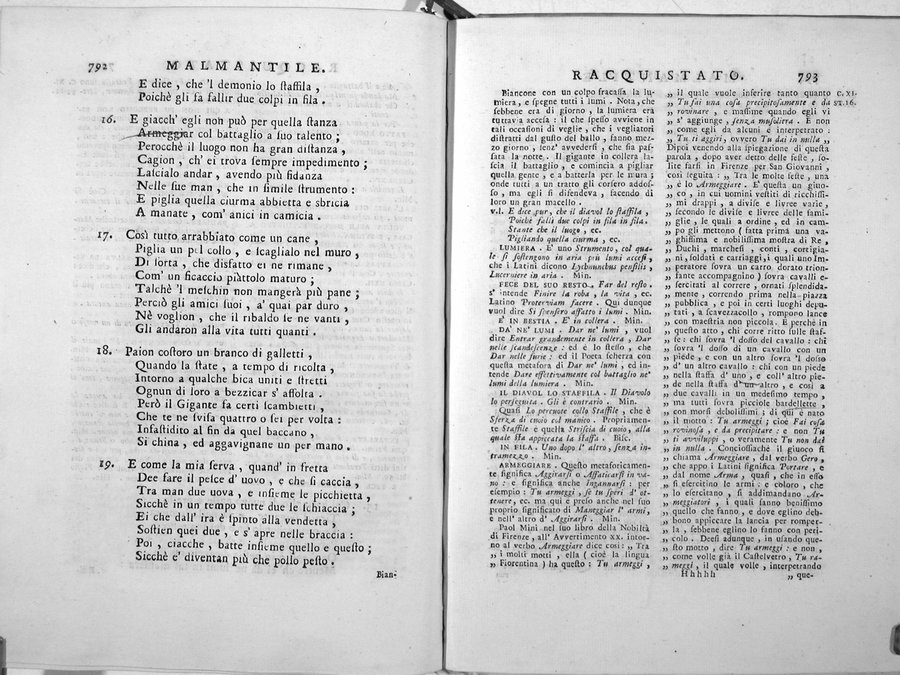 792 MALMANTILE.
E dice, che 'l demonio lo ſtaffila,
Poichè gli fà fallir due colpi in fila.
16. E giacch' egli non può per quella ſtanza
Armeggiar col battaglio a ſuo talento;
Perocchè il luogo non ha gran diſtanza,
Cagion, ch' ei trova ſempre impedimento;
Laſcialo andar, avendo più fidanza
Nelle ſue man, che in ſimile ſtrumento:
E piglia quella ciurma abbietta e sbricia
A manate, com' anici in camicia.
17. Così tutto arrabbiato come un cane,
Piglia un pel collo, e ſcaglialo nel muro,
Di ſorta, che disfatto ei ne rimane,
Com' un ficaccio piàttolo maturo;
Talchè 'l meſchin non mangerà più pane;
Perciò gli amici ſuoi, a' quai par duro,
Nè voglion, che il ribaldo ſe ne vanti,
Gli andaron alla vita tutti quanti.
18. Paion coſtoro un branco di galletti,
Quando la ſtate, a tempo di ricolta,
Intorno a qualche bica uniti e ſtretti
Ognun di loro a bezzicar s' affolta.
Però il Gigante fa certi ſcambietti,
Che te ne ſviſa quattro o ſei per volta:
Infaſtidito al fin da quel baccano,
Si china, ed aggavignane un per mano.
19. E come la mia ſerva, quand' in fretta
Dee fare il peſce d' uovo, e che ſi caccia,
Tra man due uova, e inſieme le picchietta,
Sicchè in un tempo tutte due le ſchiaccia;
Ei che dall' ira è ſpinto alla vendetta,
Soſtien quei due, e s' apre nelle braccia:
Poi, ciacche, batte inſieme quello e queſto;
Sicchè e' diventan più che pollo peſto.
Bian-
RACQUISTATO. 793
Biancone con un colpo fracaſſa la lu-
miera, e ſpegne tutti i lumi. Nota, che
ſebbene era di giorno, la lumiera era
tuttavia acceſa: il che ſpeſſo avviene in
tali occaſioni di veglie, che i vegliatori
diſtratti dal guſto del ballo, fanno mez-
zo giorno, ſenz' avvederſi, che ſia paſ-
ſata la notte. Il gigante in collera laſ-
cia il battaglio, e comincia a pigliar
quella gente, e a batterla per le mura;
onde tutti a un tratto gli corſero addoſ-
ſo, ma egli ſi difendeva, facendo di
loro un gran macello.
v.l. E dice pur, che il diavol lo ſtaffila,
Poichè falli due colpi in fila in fila.
Stante che il luogo, ec.
Pigliando quella ciurma, ec.
LUMIERA. E' uno Strumento, col qua-
le ſi ſoſtengono in aria più lumi acceſi,
che i Latini dicono Lychnuchus penſilis,
Lucerniere in aria. Min.
FECE DEL SUO RESTO. Far del reſto.
s' intende Finire la roba, la vita, ec.
Latino Proterviam facere. Qui dunque
vuol dire Si ſpenſero affatto i lumi. Min.
E' IN BESTIA. E' in collera. Min.
DA' NE' LUMI. Dar ne' lumi, vuol
dire Entrar grandemente in collera, Dar
nelle ſcandeſcenze: ed è lo ſteſſo, che
Dar nelle furie: ed il Poeta ſcherza con
queſta metafora di Dar ne' lumi, ed in-
tende Dare effettivamente col battaglio ne'
lumi della lumiera. Min.
IL DIAVOL LO STAFFILA. Il Diavolo
lo perſeguita. Gli è contrario. Min.
Quaſi Lo percuote collo Staffile, che è
Sferza di cuoio col manico. Propriamen-
te Staffile è quella Striſcia di cuoio, alla
quale ſta appiccata la ſtaffa. Biſc.
IN FILA. Uno dopo l' altro, ſenza in-
tramezzo. Min.
ARMEGGIARE. Queſto metaforicamen-
te ſignifica Aggirarſi o Affaticarſi in va-
no: e ſignifica anche Ingannarſi: per
eſempio: Tu armeggi, ſe tu ſperi d' ot-
tenere, ec. ma qui è preſo anche nel ſuo
proprio ſignificato di Maneggiar l' armi,
e nell' altro d' Aggirarſi. Min.
Paol Mini nel ſuo libro della Nobiltà
di Firenze, all' Avvertimento XX. intor-
no al verbo Armeggiare dice così: „ Tra
„ i molti motti, ella (cioè la lingua
„ Fiorentina) ha queſto: Tu armeggi,
„ il quale vuole inferire tanto quanto C. XI.
„ Tu fai una coſa precipitoſamente e da ST. 16.
„ rovinare, e maſſime quando egli vi
„ s' aggiunge, ſenza muſoliera. E non
„ come egli da alcuni è interpetrato:
„ Tu ti aggiri, ovvero Tu dai in nulla „
Dipoi venendo alla ſpiegazione di queſta
parola, dopo aver detto delle feſte, ſo-
lite farſi in Firenze per San Giovanni,
così ſeguita: „ Tra le molte feſte, una
„ è lo Armeggiare. E' queſta un giuo-
„ co, in cui uomini veſtiti di ricchiſſi-
„ mi drappi, a diviſe e livree varie,
„ ſecondo le diviſe e livree delle fami-
„ glie, le quali a ordine, ed in cam-
„ po gli mettono (fatta prima una va-
„ ghiſſima e nobiliſſima moſtra di Re,
„ Duchi, marcheſi, conti, cortigia-
„ ni, ſoldati e carriaggi, i quali uno Im-
„ peratore ſovra un carro dorato trion-
„ fante accompagnino) ſovra cavalli e-
„ ſercitati al correre, ornati ſplendida-
„ mente, correndo prima nella piazza
„ pubblica, e poi in certi luoghi depu-
„ tati, a ſcavezzacollo, rompono lance
„ con maeſtria non piccola. E perchè in
„ queſto atto, chi corre ritto ſulle ſtaf-
„ fe: chi ſovra 'l doſſo del cavallo: chi
„ ſovra 'l doſſo di un cavallo con un
„ piede, e con un altro ſovra 'l doſſo
„ d' un altro cavallo: chi con un piede
„ nella ſtaffa d' uno, e coll' altro pie-
„ de nella ſtaffa d' un altro, e così a
„ due cavalli in un medeſimo tempo,
„ ma tutti ſovra picciole bardellette,
„ con morſi debolissimi; di quì è nato
„ il motto: Tu armeggi; cioè Fai coſa
„ rovinoſa, e da precipitare: e non Tu
„ ti avviluppi, o veramente Tu non dai
„ in nulla. Concioſſiachè il giuoco ſi
„ chiama Armeggiare, dal verbo Gero,
„ che appo i Latini ſignifica Portare, e
„ dal nome Arma, quaſi, che in eſſo
„ ſi eſercitino le armi: e coloro, che
„ lo eſercitano, ſi addimandano Ar-
„ meggiatori, i quali ſanno beniſſimo
„ quello che fanno, e dove eglino deb-
„ bono appiccare la lancia per romper-
„ la, ſebbene eglino lo fanno con peri-
„ colo. Deeſi adunque, in uſando que-
„ ſto motto, dire Tu armeggi: e non,
„ come volle già il Caſtelvetro, Tu ra-
„ meggi, il quale volle, interpetrando
Hhhhh „ que-